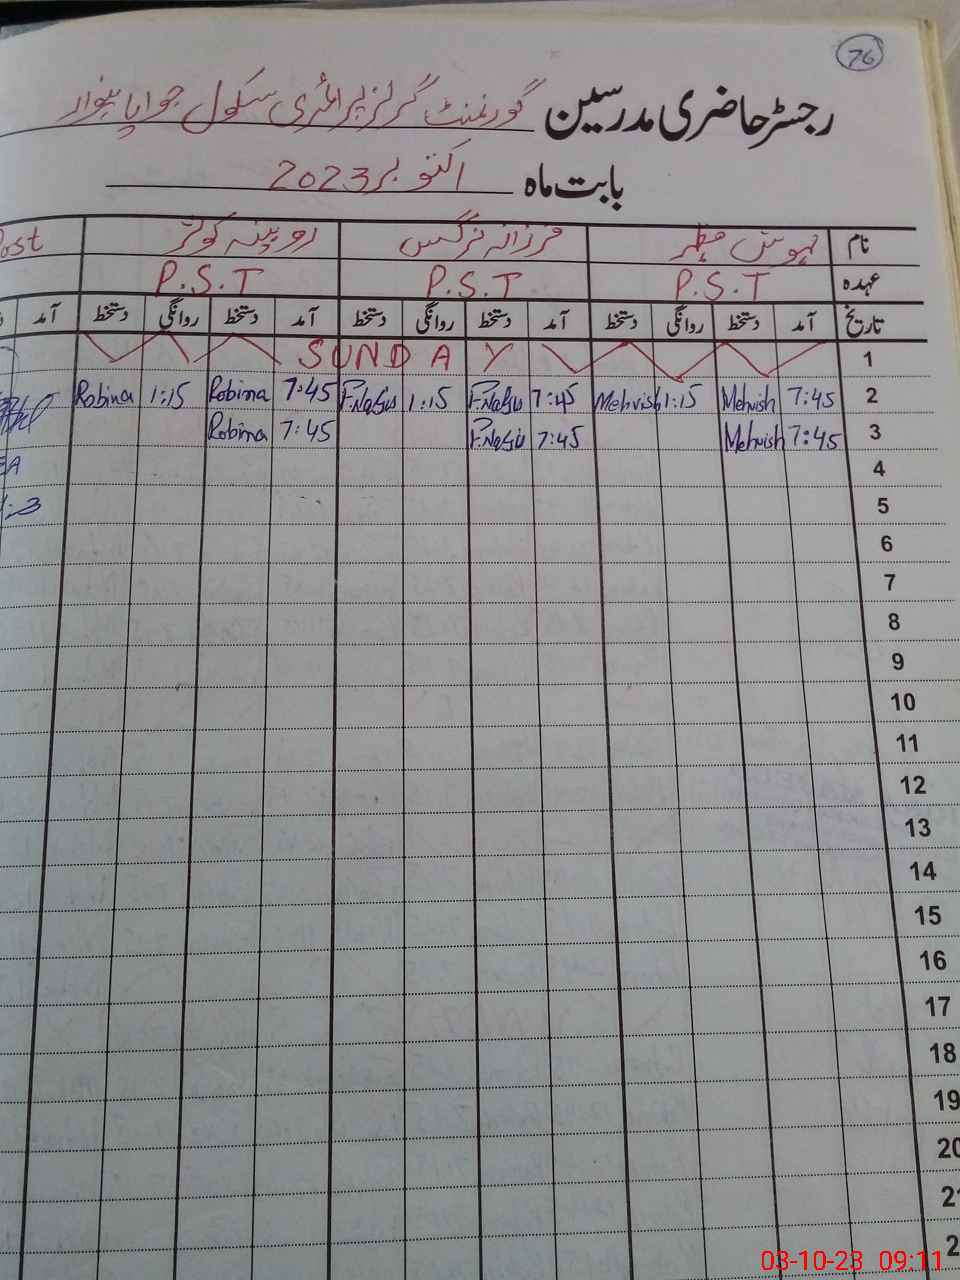 76
رجسٹر حاضری مدرسین گورنمنٹ گرلز پرائمری سکول
بابت ماہ اکتوبر 2023
نام مہوش مظہر فرزانہ نرگس روبینہ کوثر Post
عہدہ P.S.T P.S.T P.S.T
تاریخ آمد دستخط روانگی دستخط آمد دستخط روانگی دستخط آمد دستخط روانگی دستخط آمد
1 SUNDAY
2 7:45 Mehvish 1:15 Mehvish 7:45 F.Nargis 1:15 F.Nargis 7:45 Robina 1:15 Robina
3 7:45 Mehvish 7:45 F.Nargis 7:45 Robina
4
5
6
7
8
9
10
11
12
13
14
15
16
17
18
19
20
21
03-10-23 09:11